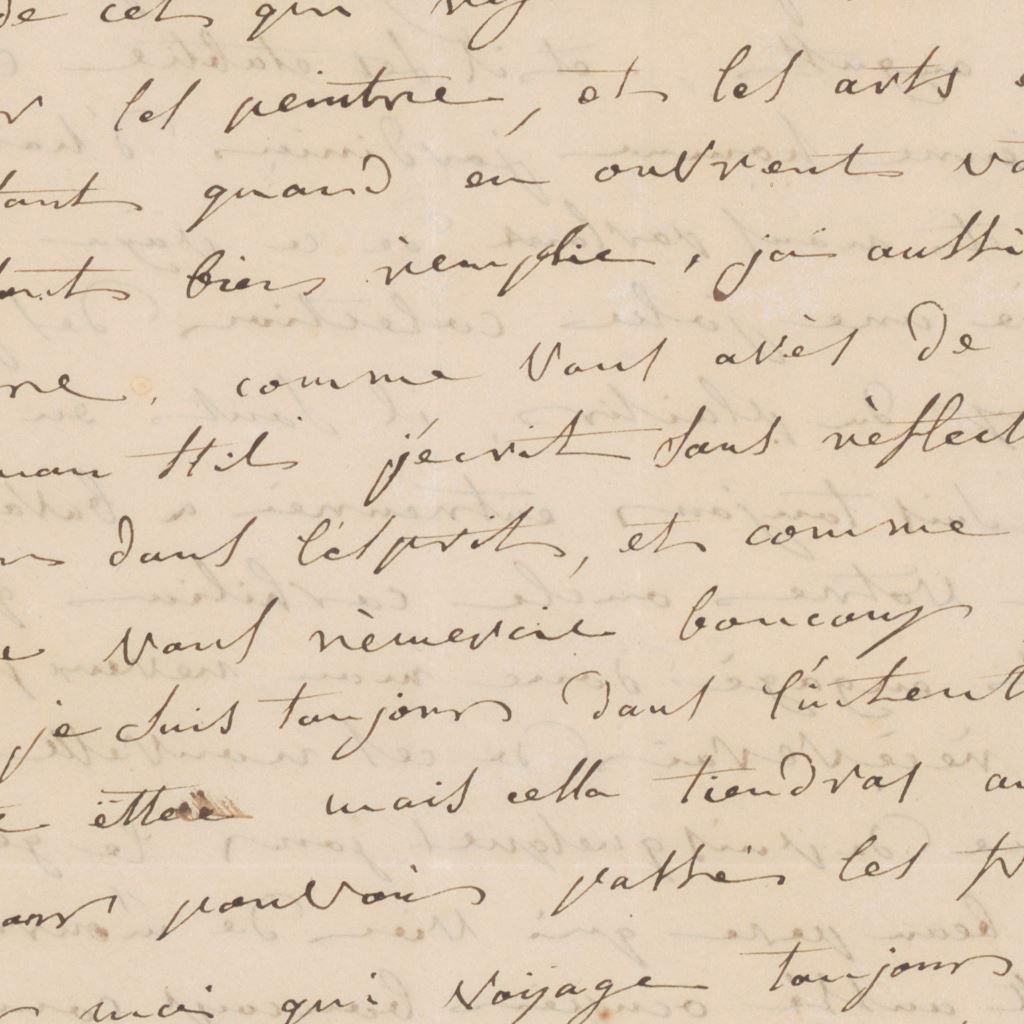 de cet qui
les peintrie, et les arts
tant quand en ouvrent
bien rèmplie, jai aussi
comme vous avès de
Stil j'écrit sans rèflect
dans l'ésprit, et comme
vous rèmercie boucoup
je suis toujours dans l'intent
ètteè mais cella tiendras au
pouvoir passès les
moi qui voyage toujours